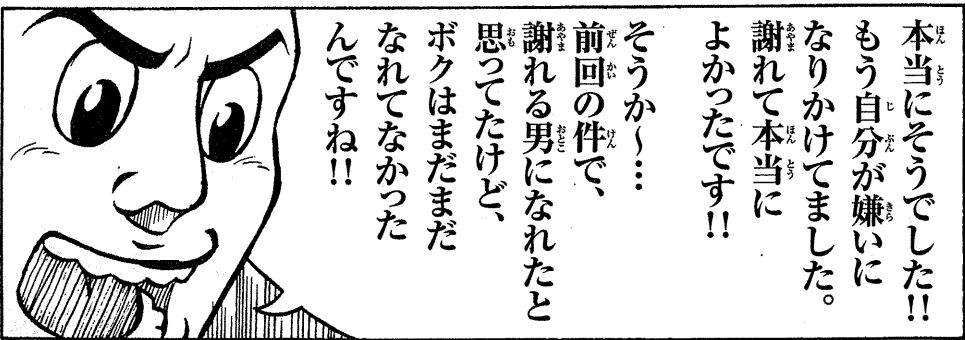 本当にそうでした!!
もう自分が嫌いに
なりかけてました。
謝れて本当に
よかったです!!
そうか〜…
前回の件で、
謝れる男になれたと
思ってたけど、
ボクはまだまだ
なれてなかった
んですね!!